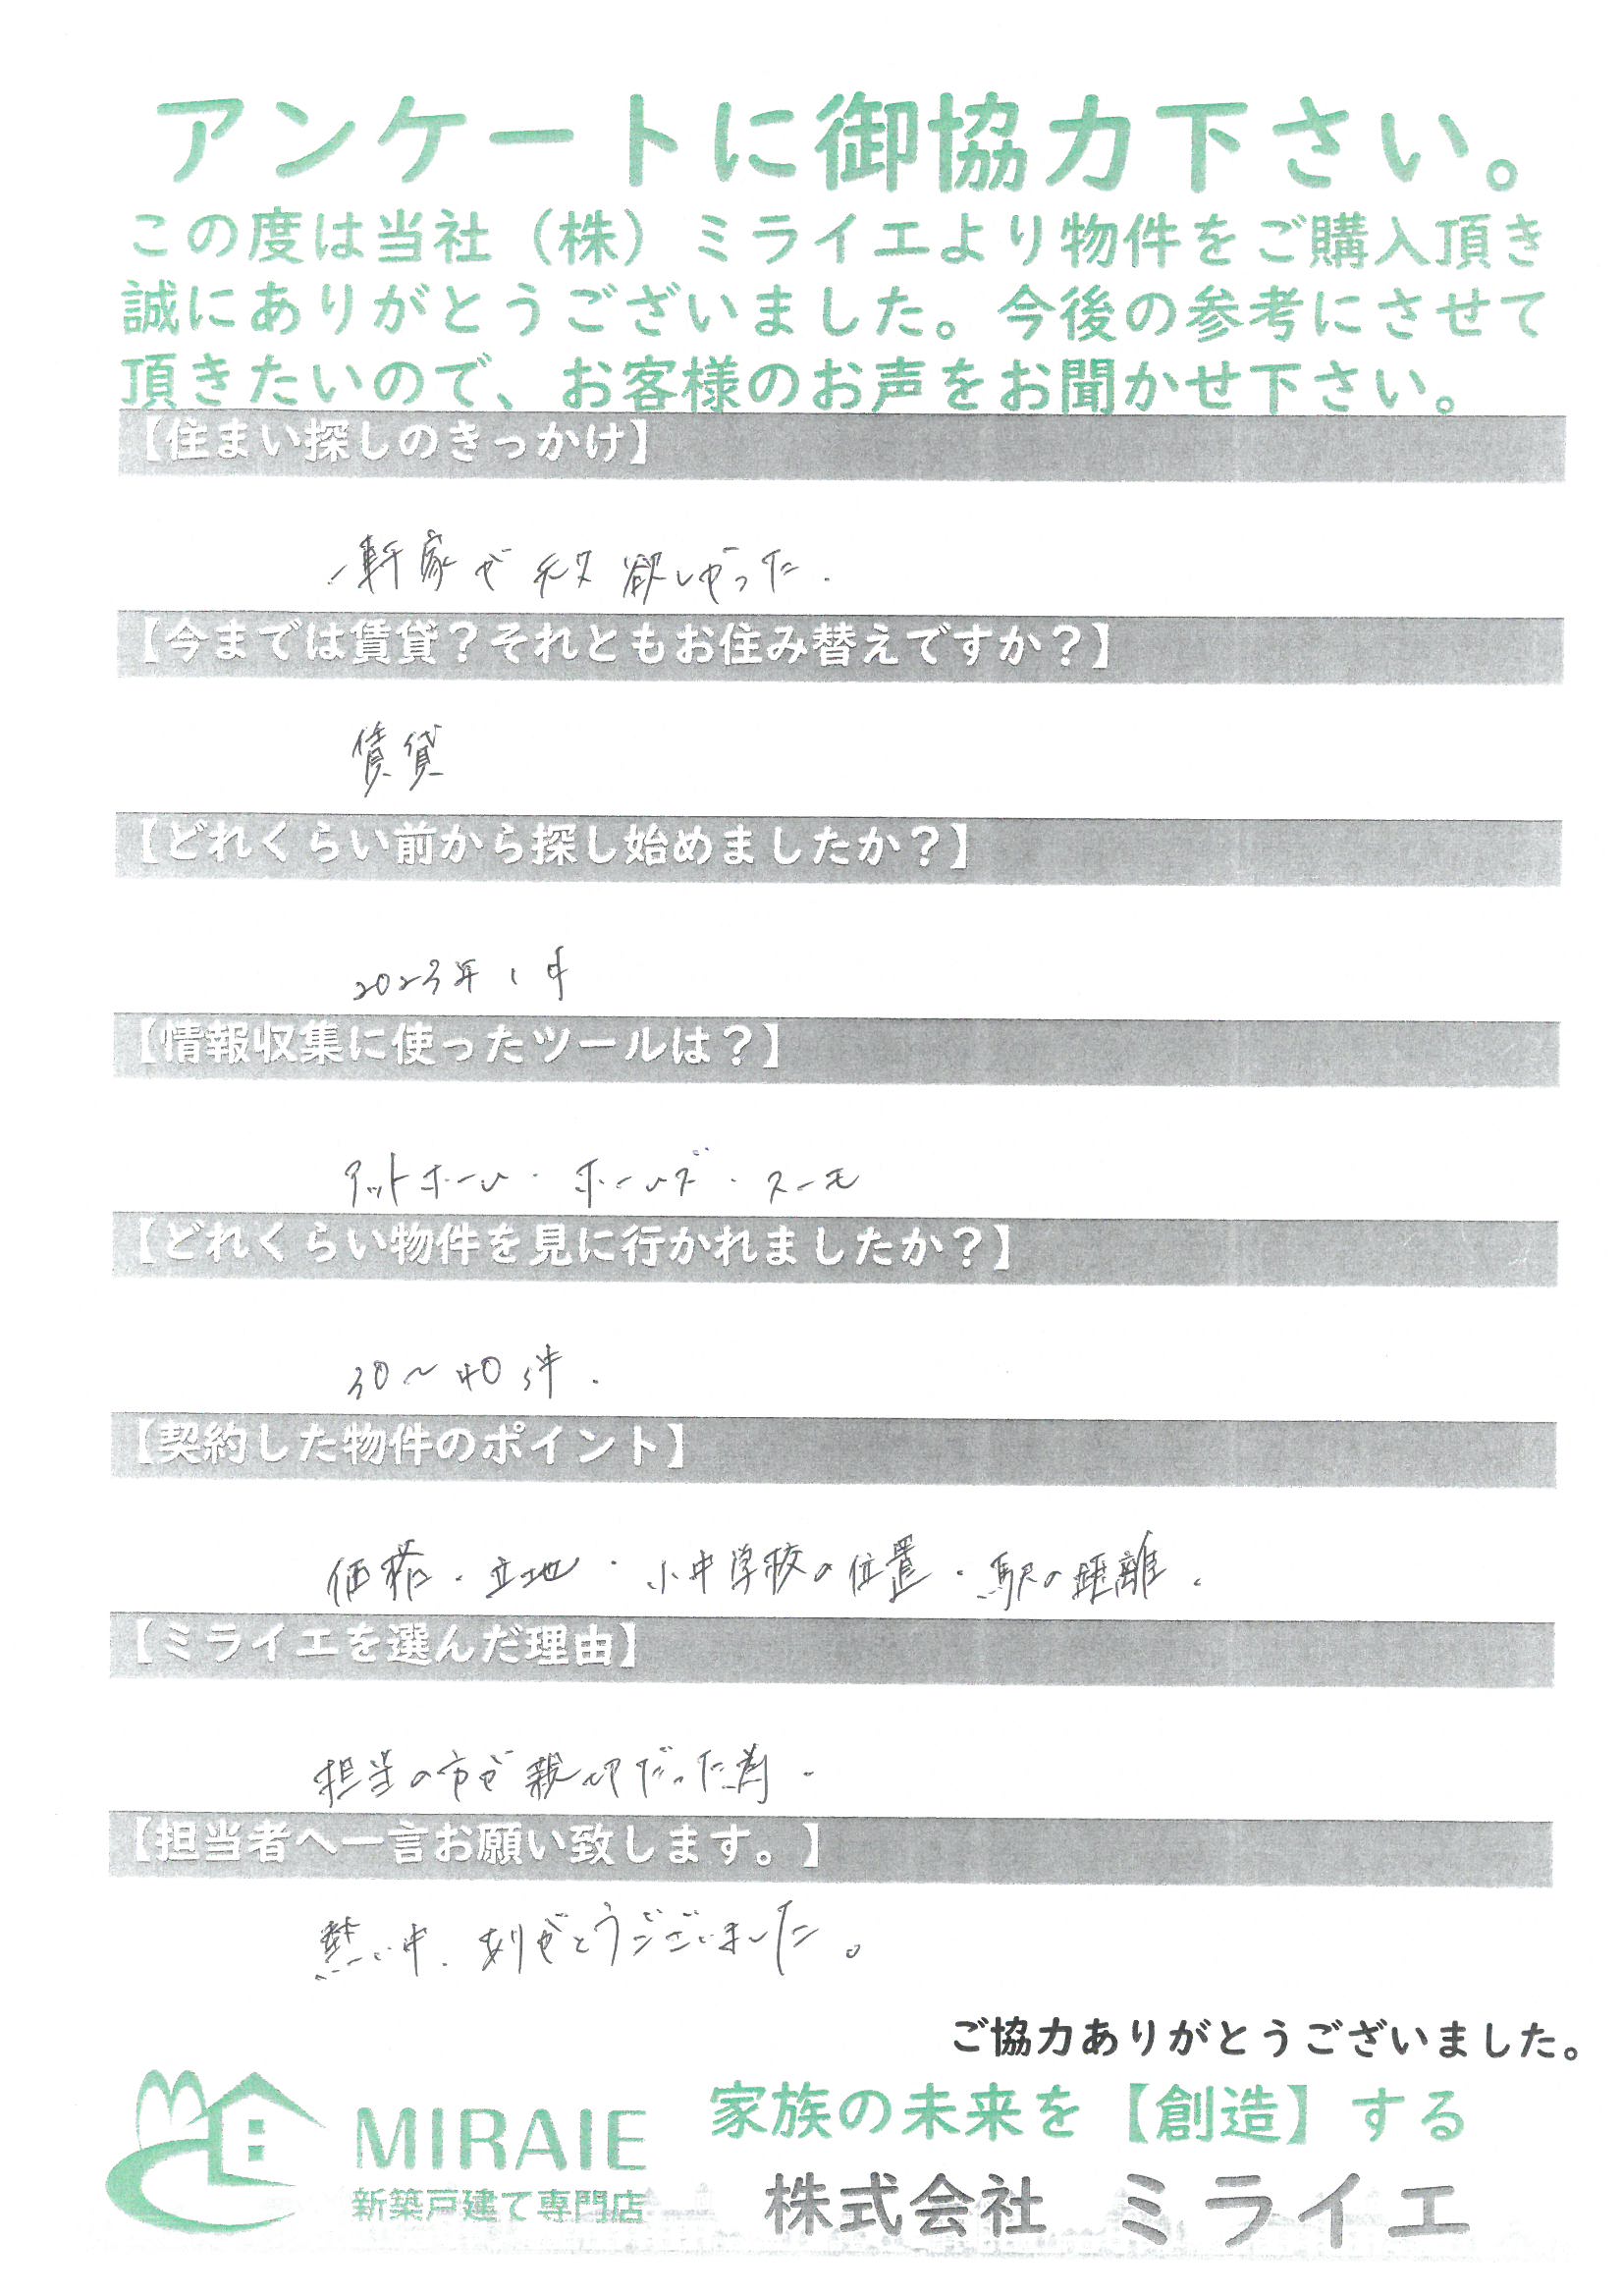 アンケートに御協力下さい。
この度は当社（株）ミライエより物件をご購入頂き
誠にありがとうございました。今後の参考にさせて
頂きたいので、お客様のお声をお聞かせ下さい。
【住まい探しのきっかけ】
一軒家が 欲しかった.
【今までは賃貸？それともお住み替えですか？】
賃貸
【どれくらい前から探し始めましたか？】
2023年1月
【情報収集に使ったツールは？】
アットホーム・ホームズ・スーモ
【どれくらい物件を見に行かれましたか？】
30～40件.
【契約した物件のポイント】
価格・立地・小中学校の位置・駅の距離.
【ミライエを選んだ理由】
担当の方が親切だった為.
【担当者へ一言お願い致します。】
熱い中、ありがとうございました。
ご協力ありがとうございました。
MIRAIE
新築戸建て専門店
家族の未来を【創造】する
株式会社 ミライエ